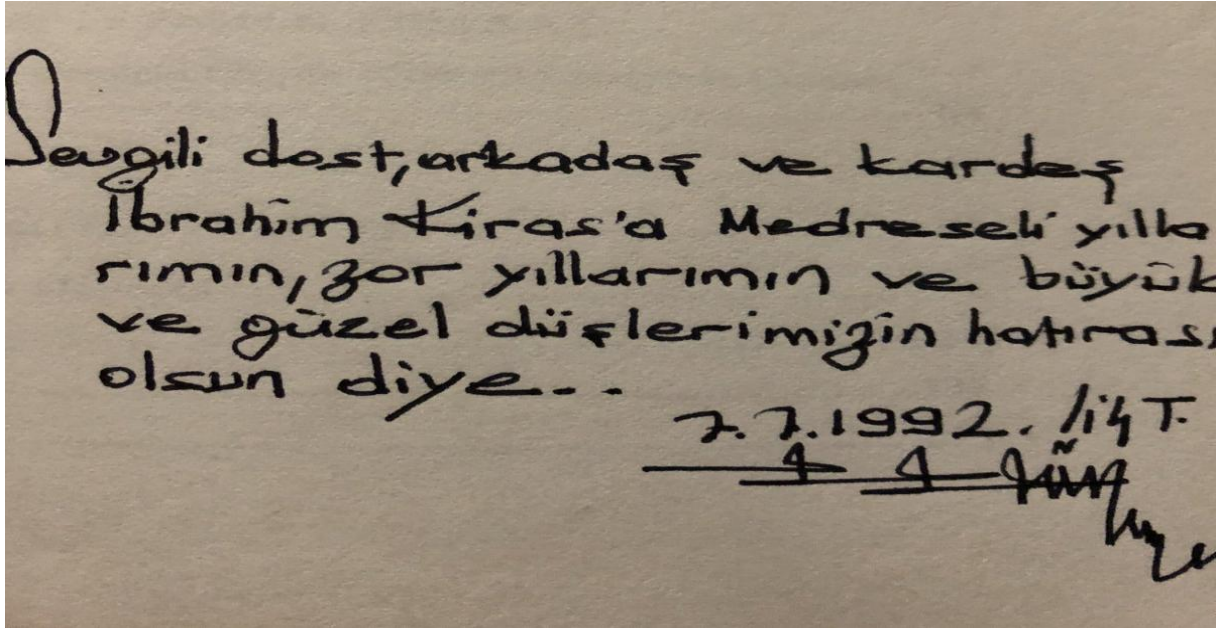 Sevgili dost, arkadaş ve kardeş
İbrahim Kiras'a Medreseli yılla
rımın, zor yıllarımın ve büyük
ve güzel düşlerimizin hatırası
olsun diye...
7.7.1992. T.